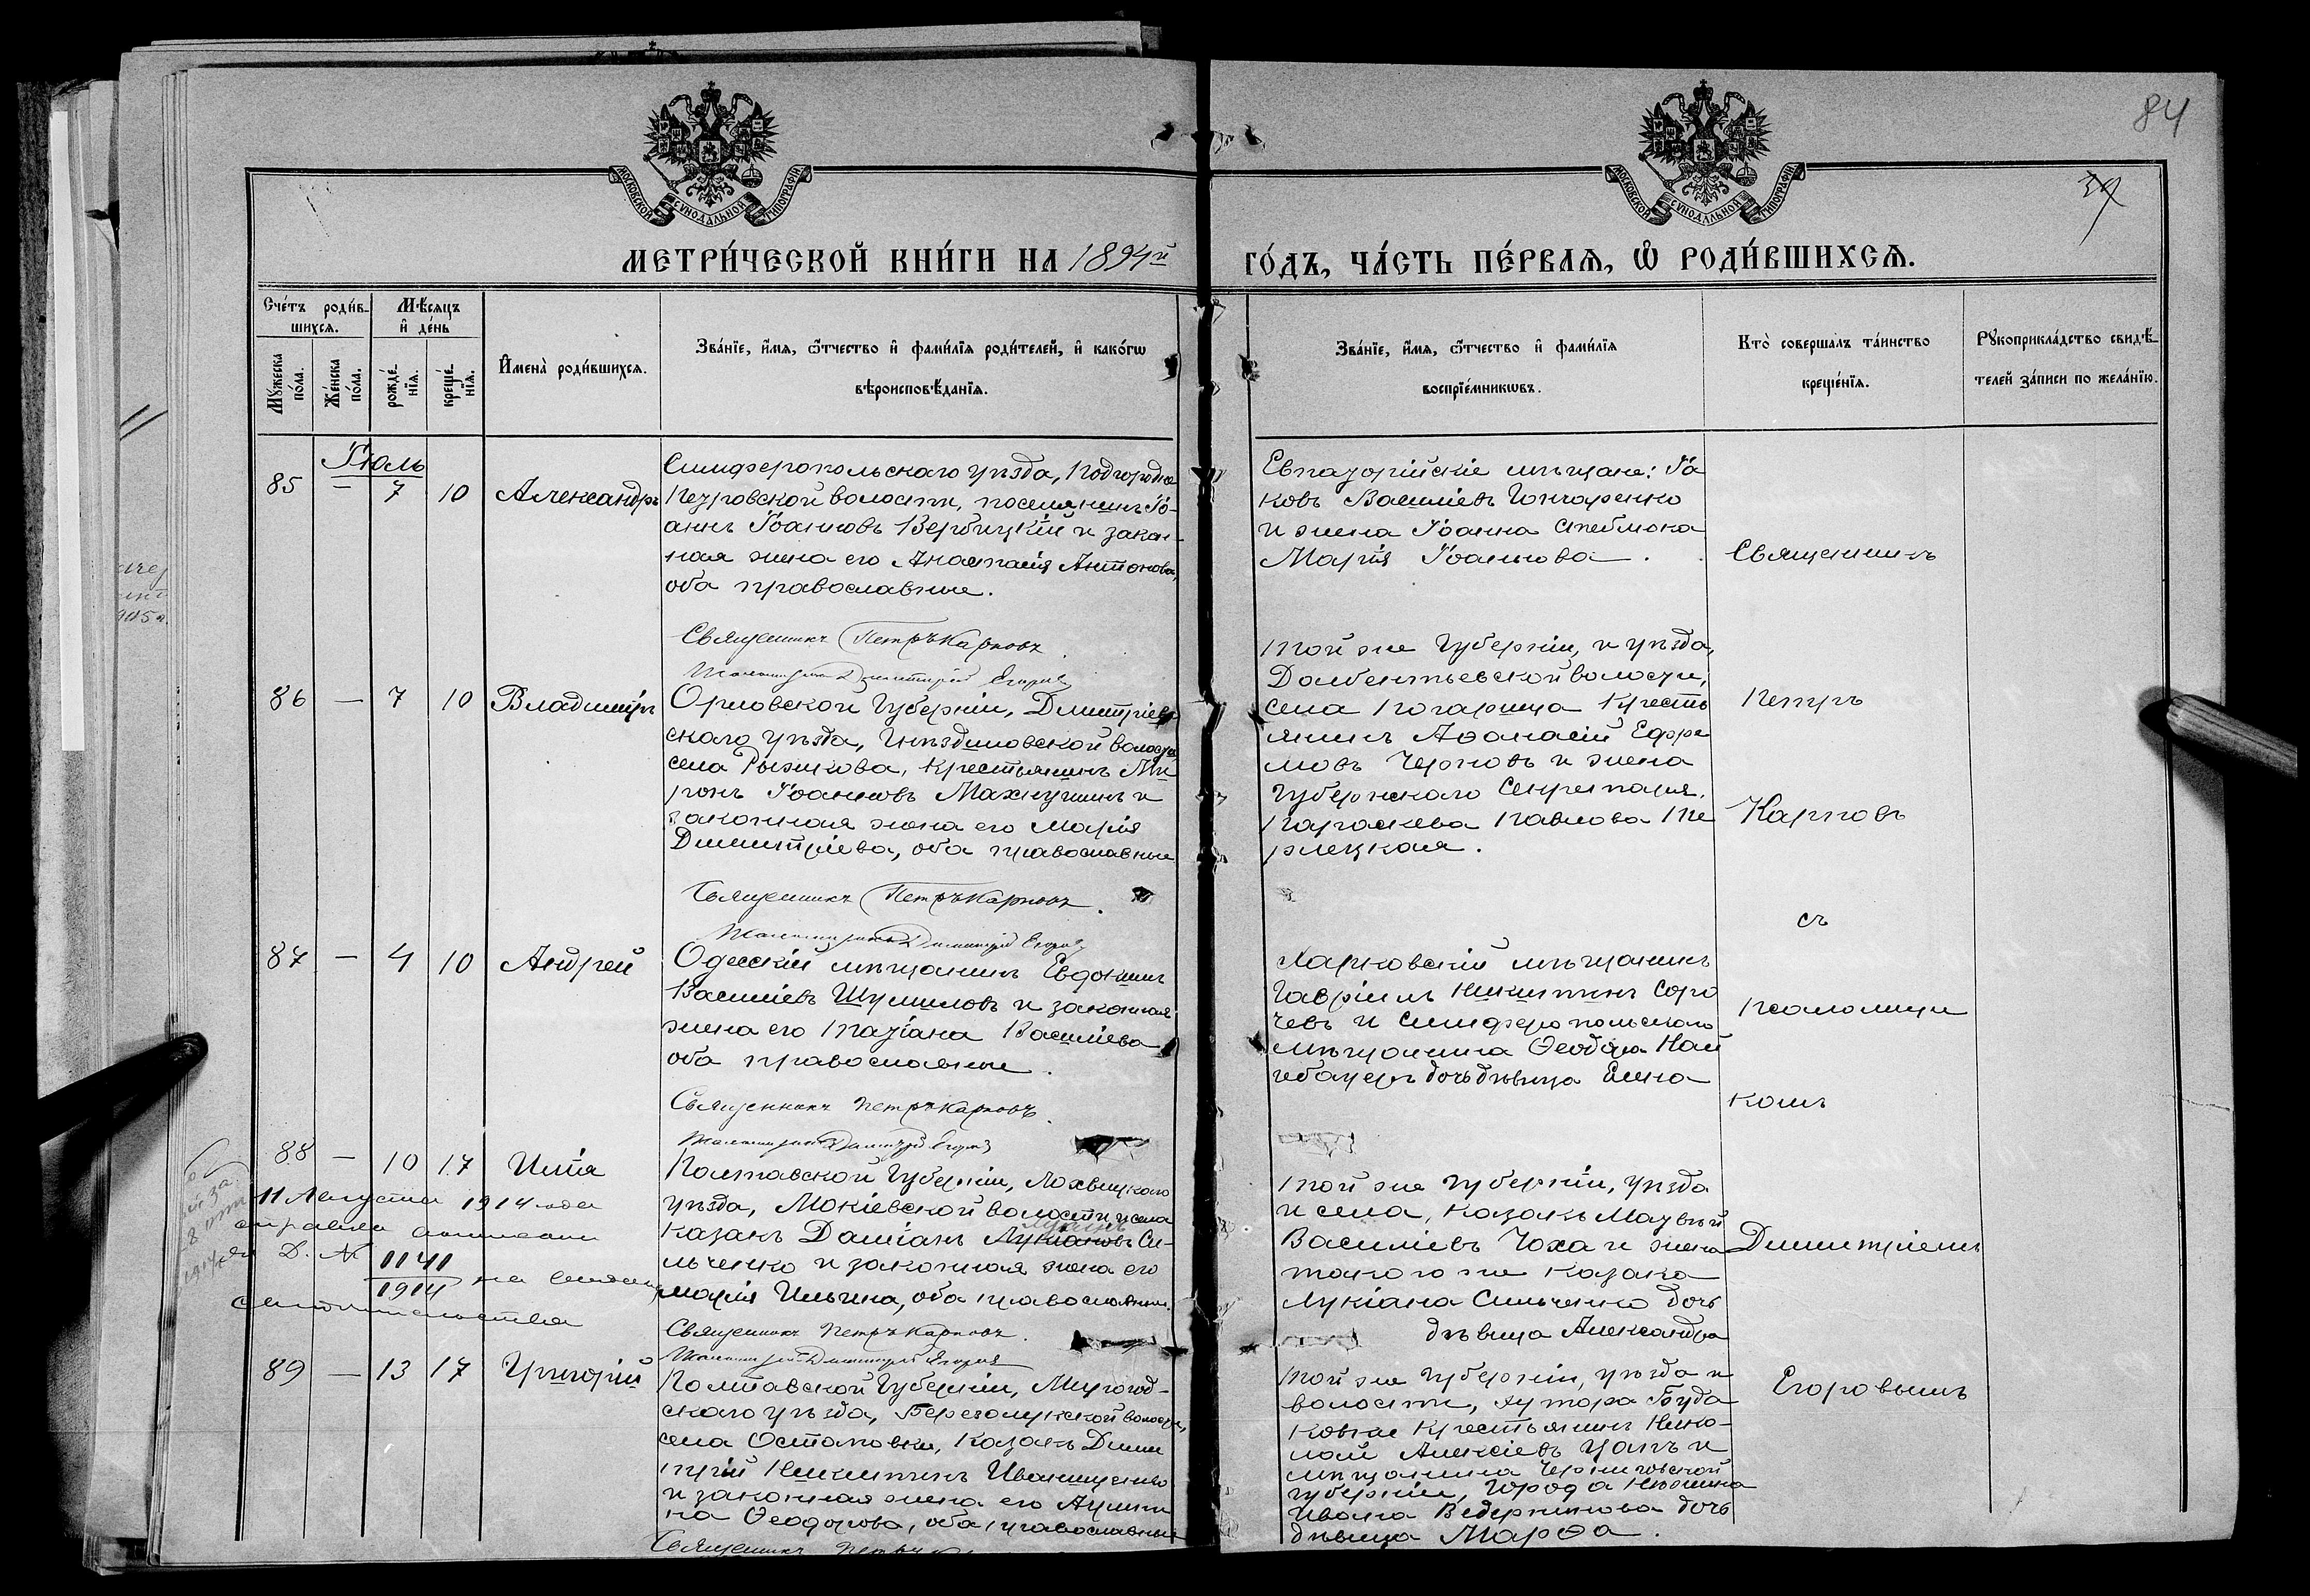 84
39
МОСКОВСКОЙ СѴНОДАЛЬНОЙ ТИПОГРАФІИ
МОСКОВСКОЙ СѴНОДАЛЬНОЙ ТИПОГРАФІИ
МЕТРИ́ЧЕСКОЙ КНИ́ГИ НА 1894й
ГО́ДЪ, ЧА́СТЬ ПЕ́РВАЯ, Ѡ РОДИ́ВШИХСѦ.
Сче́тъ роди́в-
шихсѧ.
Мꙋ́жеска по́ла.
Же́нска по́ла.
Мѣ́сѧцъ
и҆ де́нь
рожде́-
нїѧ.
креще́-
нїѧ.
И҆мена̀ роди́вшихсѧ.
Зва́нїе, и҆́мѧ, ѻ҆́тчество и҆ фами́лїѧ роди́телей, и҆ како́гѡ
вѣроисповѣ́данїѧ.
Зва́нїе, и҆́мѧ, ѻ҆́тчество и҆ фами́лїѧ
воспрїе́мникѡвъ.
Кто̀ соверша́лъ та́инство
креще́нїѧ.
Рꙋкоприкла́дство свидѣ́-
телей за́писи по жела́нїю.
Іюль
85 — 7 10 Александръ
Симферопольскаго уѣзда, Подгородне
Петровской волости, поселянинъ Іо-
аннъ Іоанновъ Вербицкій и закон-
ная жена его Анастасія Антонова,
оба православные.
Священникъ Петръ Карповъ.
Псаломщикъ Димитрій Егоровъ
Евпаторійскіе мѣщане: Іа
ковъ Василіевъ Гончаренко
и жена Іоанна Стеблюка
Марія Іоаннова.
Священникъ
86 — 7 10 Владиміръ
Орловской Губерніи, Дмитріев
скаго уѣзда, Гнѣздиловской волости
села Рыжкова, крестьянинъ Ми
ронъ Іоанновъ Махнушинъ и
законная жена его Марія
Димитріева, оба православные
Священникъ Петръ Карповъ.
Псаломщикъ Димитрій Егоровъ
той же Губерніи, и уѣзда,
волости,
села Погарища крестья
янинъ Аѳанасій Ефре
мовъ Черновъ и жена
Губернскаго Секретаря,
Параскева Павлова Пе
ржецкая.
Петръ
Карповъ
съ
87 — 4 10 Андрей
Одесскій мѣщанинъ Евдокимъ
Василіевъ Шумиловъ и законная
жена его Татіана Василіева
оба православные.
Священникъ Петръ Карповъ.
Псаломщикъ Димитрій Егоровъ
Харьковскій мѣщанинъ
Гавріилъ Никитинъ Соро
чевъ и Симферопольскаго
мѣщанина Ѳеодора Най
гебауеръ дочь дѣвица Елена
Псаломщи
комъ
88 — 10 17 Илія
11 Августа 1914 года
справка
за Д. №
1141
1914
на
Полтавской Губерніи, Лохвицкаго
уѣзда, Мокіевской волости и села
казакъ Даміанъ Лукіановъ Си-
льченко и законная жена его
Марія Ильина, оба православн.
Священникъ Петръ Карповъ.
Псаломщикъ Димитрій Егоровъ
той же губерніи, уѣзда
и села, казакъ Матвѣй
Василіевъ Чоха и жена
такого же казака
Лукіана Сильченко дочь
дѣвица Александра
Димитріемъ
89 — 13 17 Григорій
Полтавской Губерніи, Миргород-
скаго уѣзда, Березолукской волости,
села Остаповки, казакъ Дими
трій Никитинъ Иванищенко
и законная жена его Акили
на Ѳеодорова, оба православные
Священникъ Петръ
той же Губерніи, уѣзда и
волости, хутора Буда
ковки крестьянинъ Нико-
лай Алексіевъ Цапъ и
мѣщанина Черниговской
губерніи, города Нѣжина
Ивана Ведерникова дочь
дѣвица Марѳа.
Егоровымъ